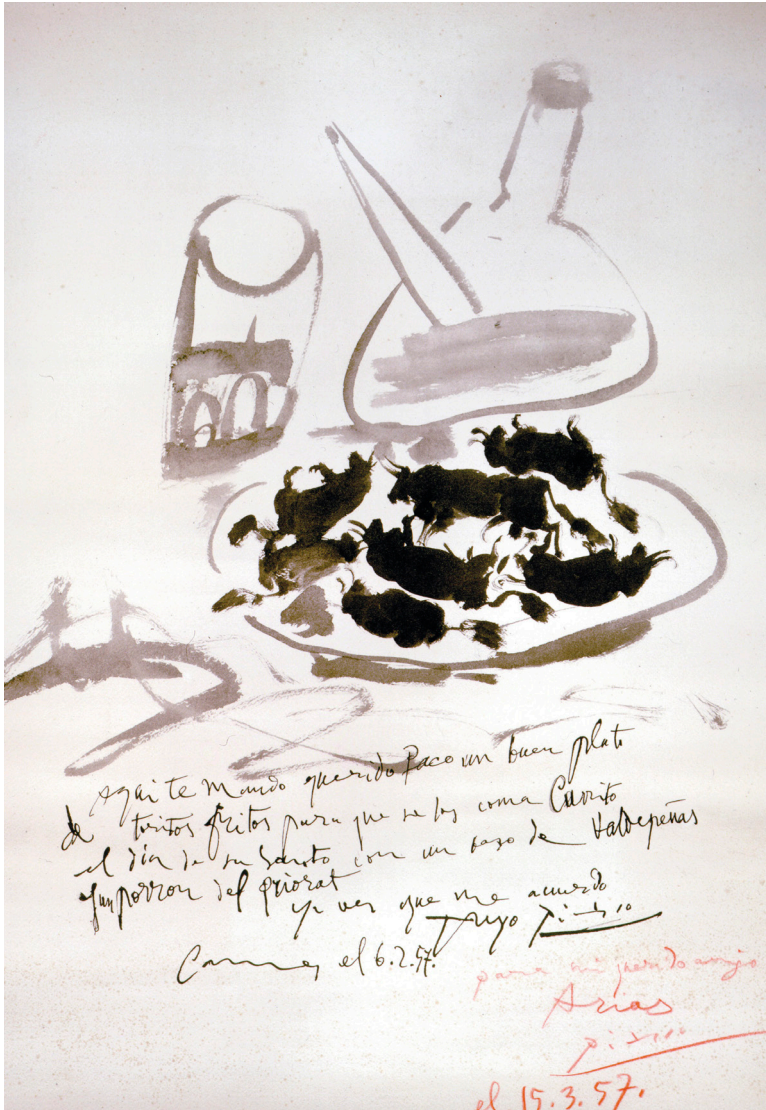 Aqui te mando querido Paco un buen plato
de toritos fritos para que se los coma Currito
el día de su Santo con un vaso de Valdepeñas
y un porron del priorat
ya ves que me acuerdo
tuyo Picasso
Cannes el 6.2.57.
para mi querido amigo
Arias
Picasso
el 15.3.57.